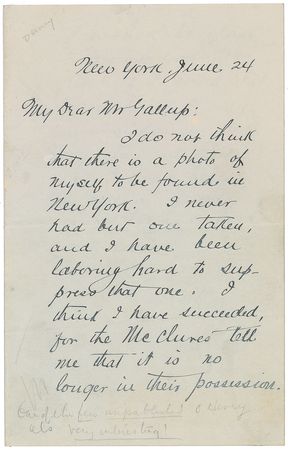 New York, June 24
My Dear Mr Gallup:
I do not think
that there is a photo of
myself to be found in
New York. I never
had but one taken,
and I have been
laboring hard to sup-
press that one. I
think I have succeeded,
for the McClures tell
me that it is no
longer in their possession.
One of the few unpublished O Henry
als very interesting!